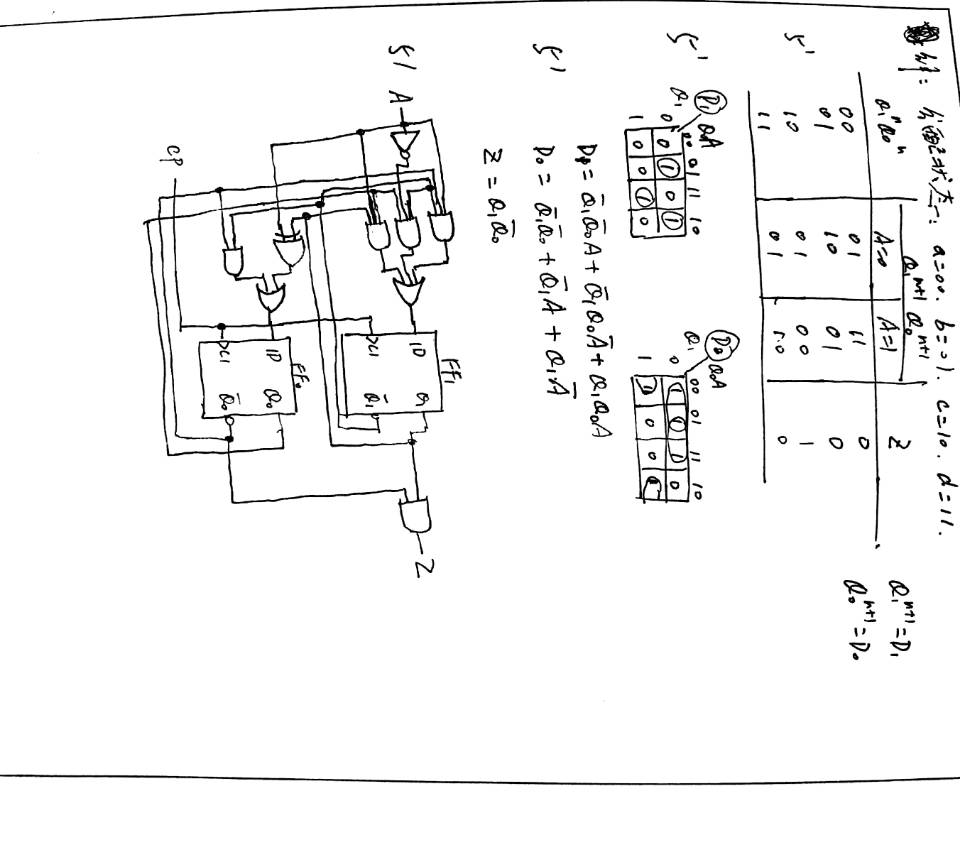 解: 分配状态: a=00. b=01. c=10. d=11.
Q₁ⁿQ₀ⁿ Q₁ⁿ⁺¹ Q₀ⁿ⁺¹ Z
A=0 A=1
00 01 11 0
01 10 01 0
10 01 00 1
11 01 0
Q₁ⁿ⁺¹=D₁
Q₀ⁿ⁺¹=D₀
5'
5'
D₁ Q₀A
Q₁ 00 01 11 10
0 0 1 0 1
1 0 0 1 0
D₀ Q₀A
Q₁ 00 01 11 10
0 1 1 1 0
1 1 0 0 1
5'
= Q̅₁Q̅₀A + Q̅₁Q₀A̅ + Q₁Q₀A
D₀ = Q̅₁Q̅₀ + Q̅₁A + Q₁A̅
Z = Q₁Q̅₀
5'
A
CP
1D Q₁
FF₁
C1 Q̅₁
1D Q₀
FF₀
C1 Q̅₀
Z